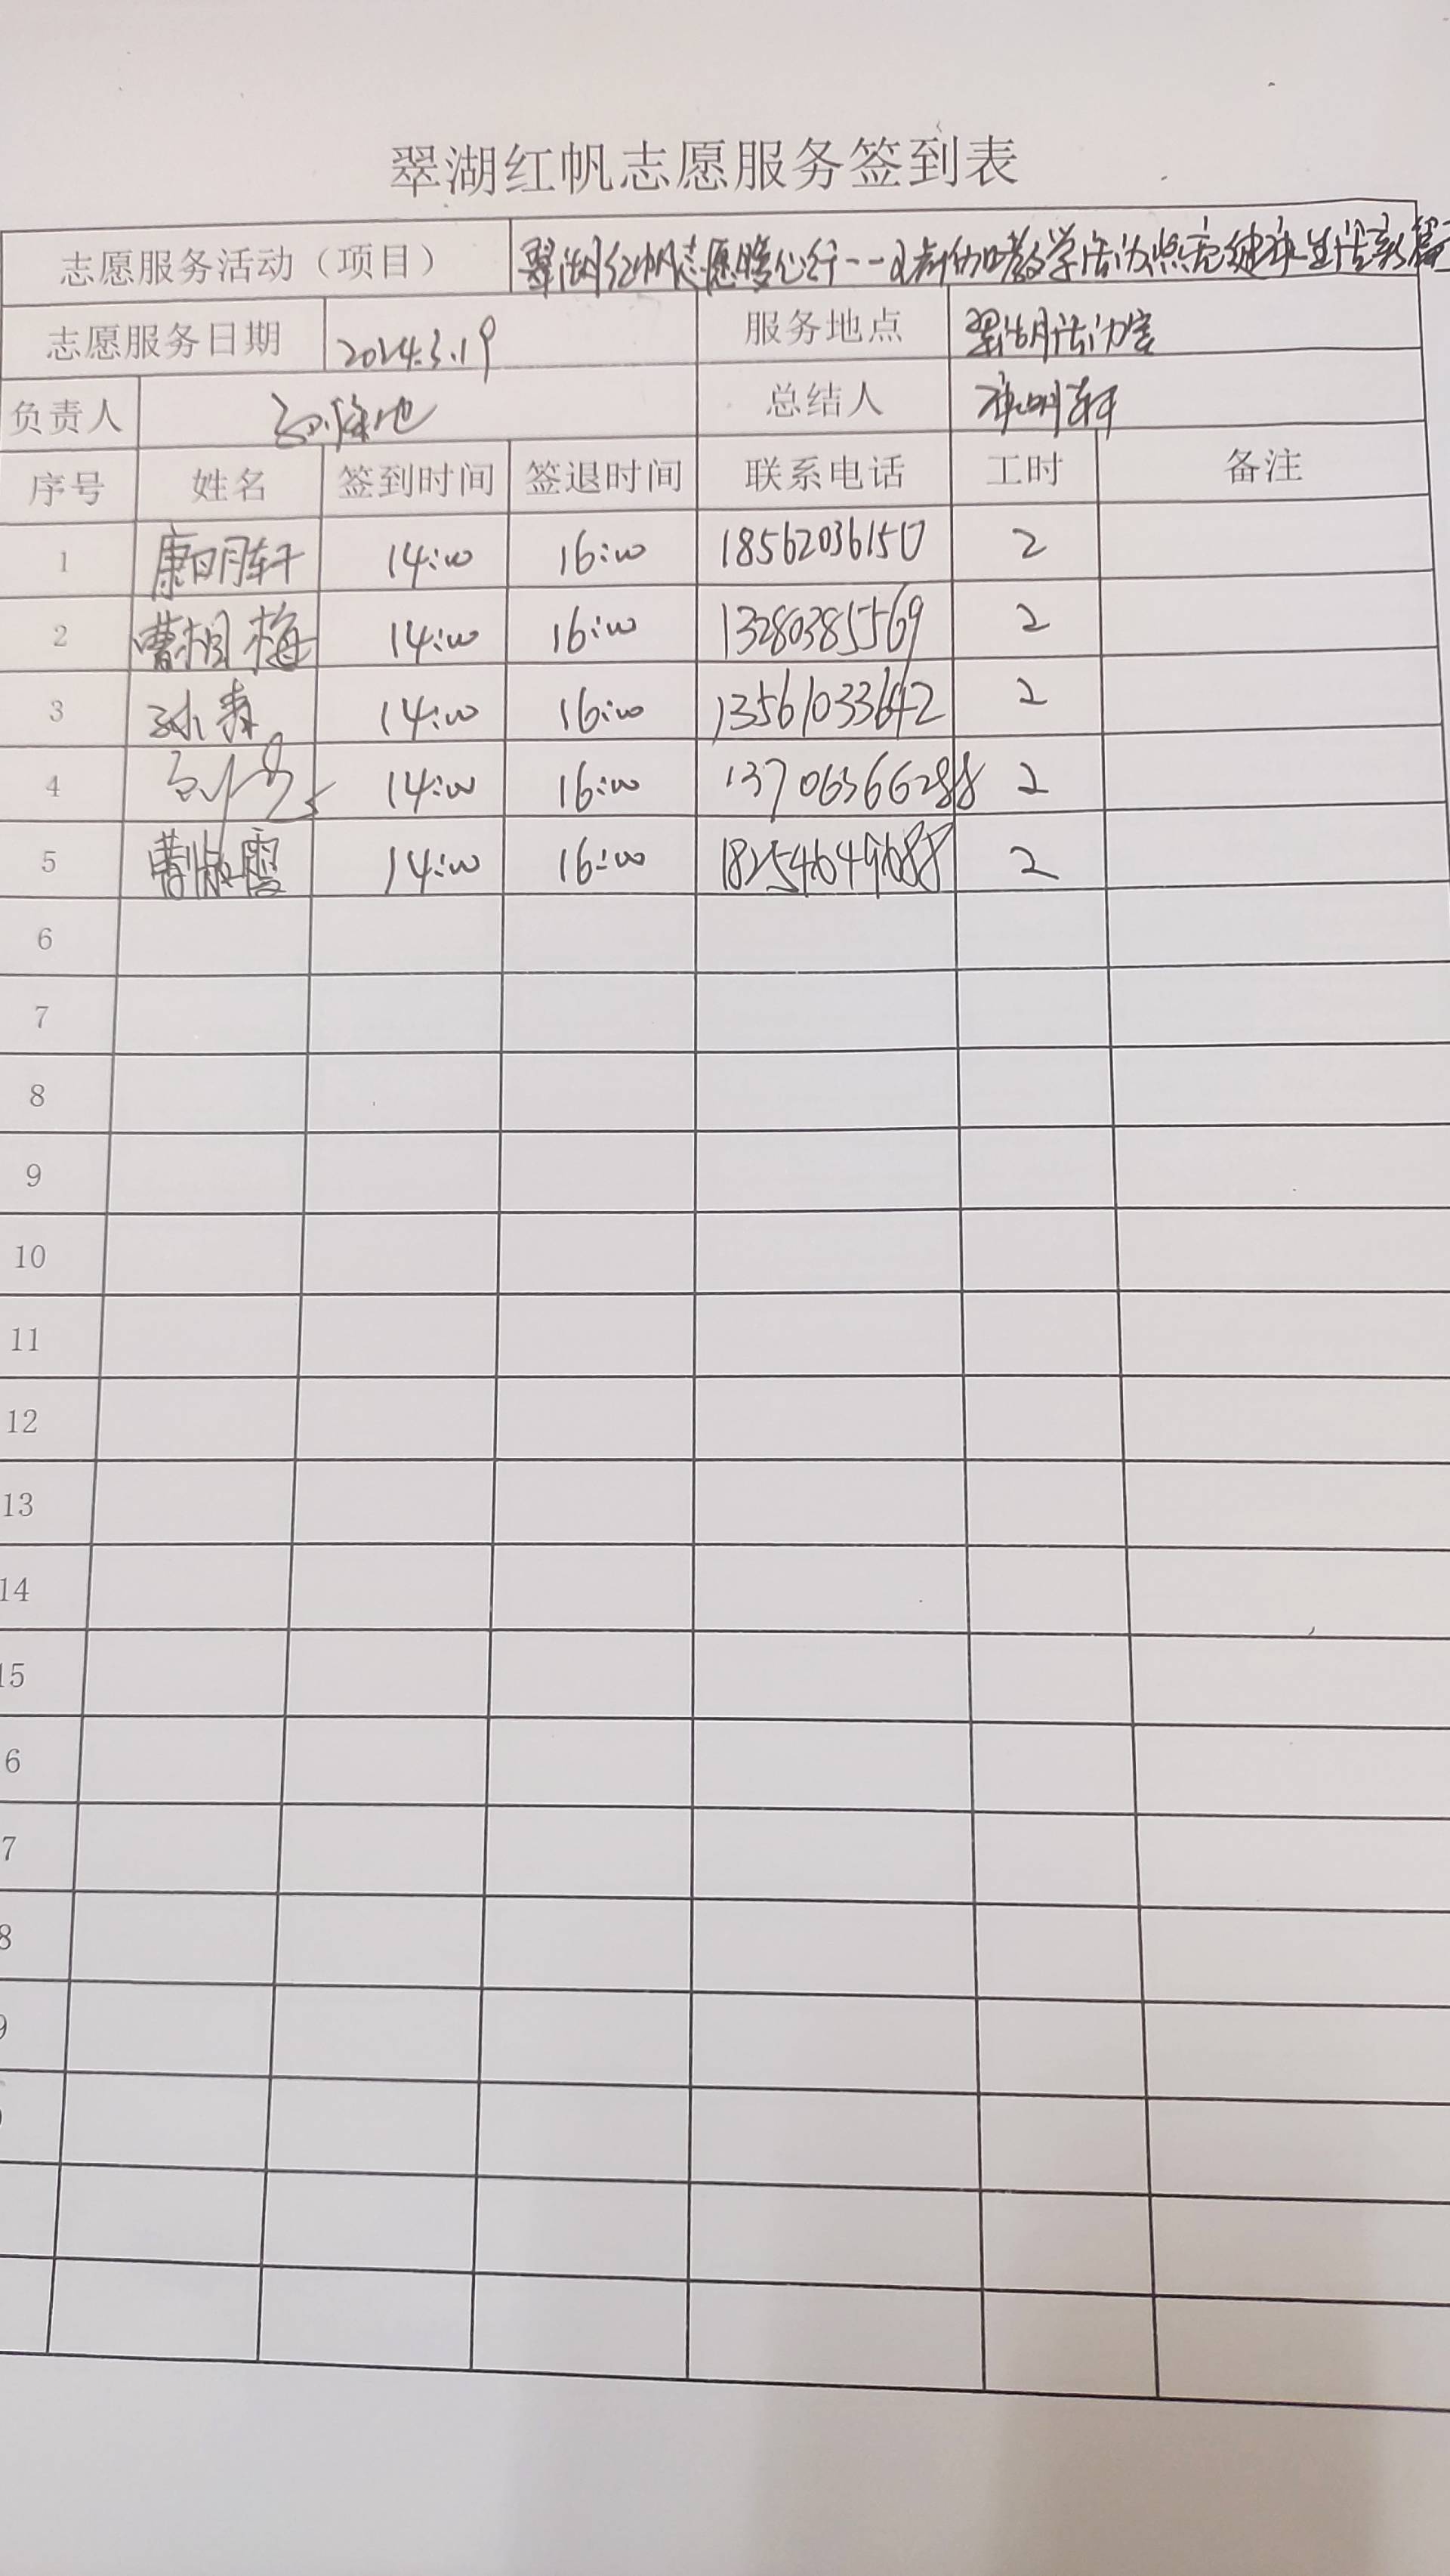 翠湖红帆志愿服务签到表
志愿服务活动（项目） 翠湖红帆志愿暖心行--教学活动点亮健康生活新篇
志愿服务日期 2024.3.19 服务地点 翠湖活动室
负责人 总结人 康明轩
序号 姓名 签到时间 签退时间 联系电话 工时 备注
1 康明轩 14:00 16:00 18562036150 2
2 曹相梅 14:00 16:00 13280385569 2
3 孙青 14:00 16:00 13561033642 2
4 14:00 16:00 13706366288 2
5 曹淑霞 14:00 16:00 18254649688 2
6
7
8
9
10
11
12
13
14
15
6
7
8
9